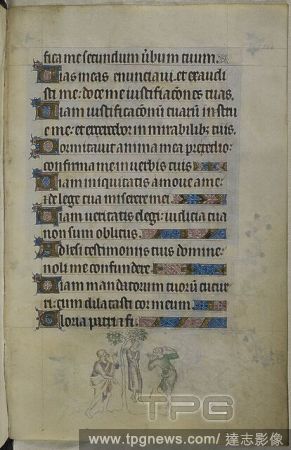 fica me secundum ūbum tuum.
Uias meas enunciaui. et exaudi
sti me: doce me iustificacōnes tuas.
Uiam iustificaconū tuarū instrue
me: et exercebor in mirabilib; tuis.
Dormitauit anima mea pre tedio:
confirma me in verbis tuis
Uiam iniquitatis amoue a me:
& de lege tua miserere mei
Uiam veritatis elegi: iudicia tua
non sum oblitus.
Adhesi testimoniis tuis domine:
noli me confundere
Uiam mandatorum tuorū cucur
ri: cum dilatasti cor meum
Gloria patri & fi.
TPG
www.tpgnews.com / 達志影像